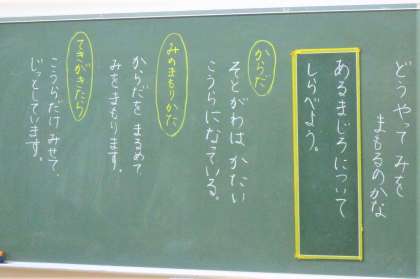 どうやてみを
まもるのかな
あるまじろについて
しらべよう。
からだ
そとがわは かたい
こうらになっている。
みのまもりかた
からだを まるめて
みをまもります。
てきがきたら
こうらだけ みせて、
じっとしています。